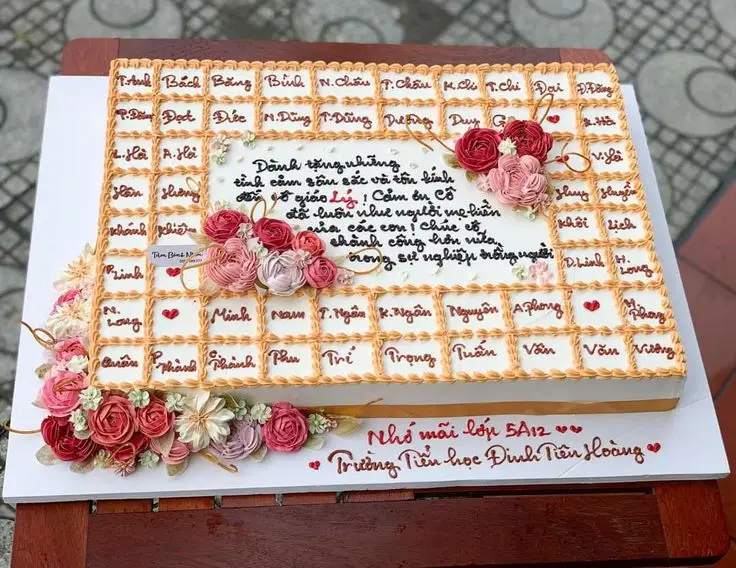 T.Anh Bách Băng Bình N.Châu P.Châu M.Chi T.Chi Đại Đ.Đăng
P.Đăng Đạt Đức N.Dũng T.Dũng Dương Duy K.Hà
L.Hà A.Hải V.Hà
Hân Hoàng Huy Huyền
Khánh Khôi Lịch
P.Linh D.Linh H.Long
N.Long Minh Nam T.Ngân K.Ngân Nguyên A.Phong H.Phong
Quân P.Thành C.Thành Thu Trí Trọng Tuấn Vân Văn Vương
Dành tặng những
tình cảm sâu sắc và tôn kính
đến cô giáo Lý! Cảm ơn Cô
đã luôn như người mẹ hiền
của các con! Chúc cô
thành công hơn nữa
trong sự nghiệp trồng người
Tiệm Bánh
Nhớ mãi lớp 5A12
Trường Tiểu học Đinh Tiên Hoàng